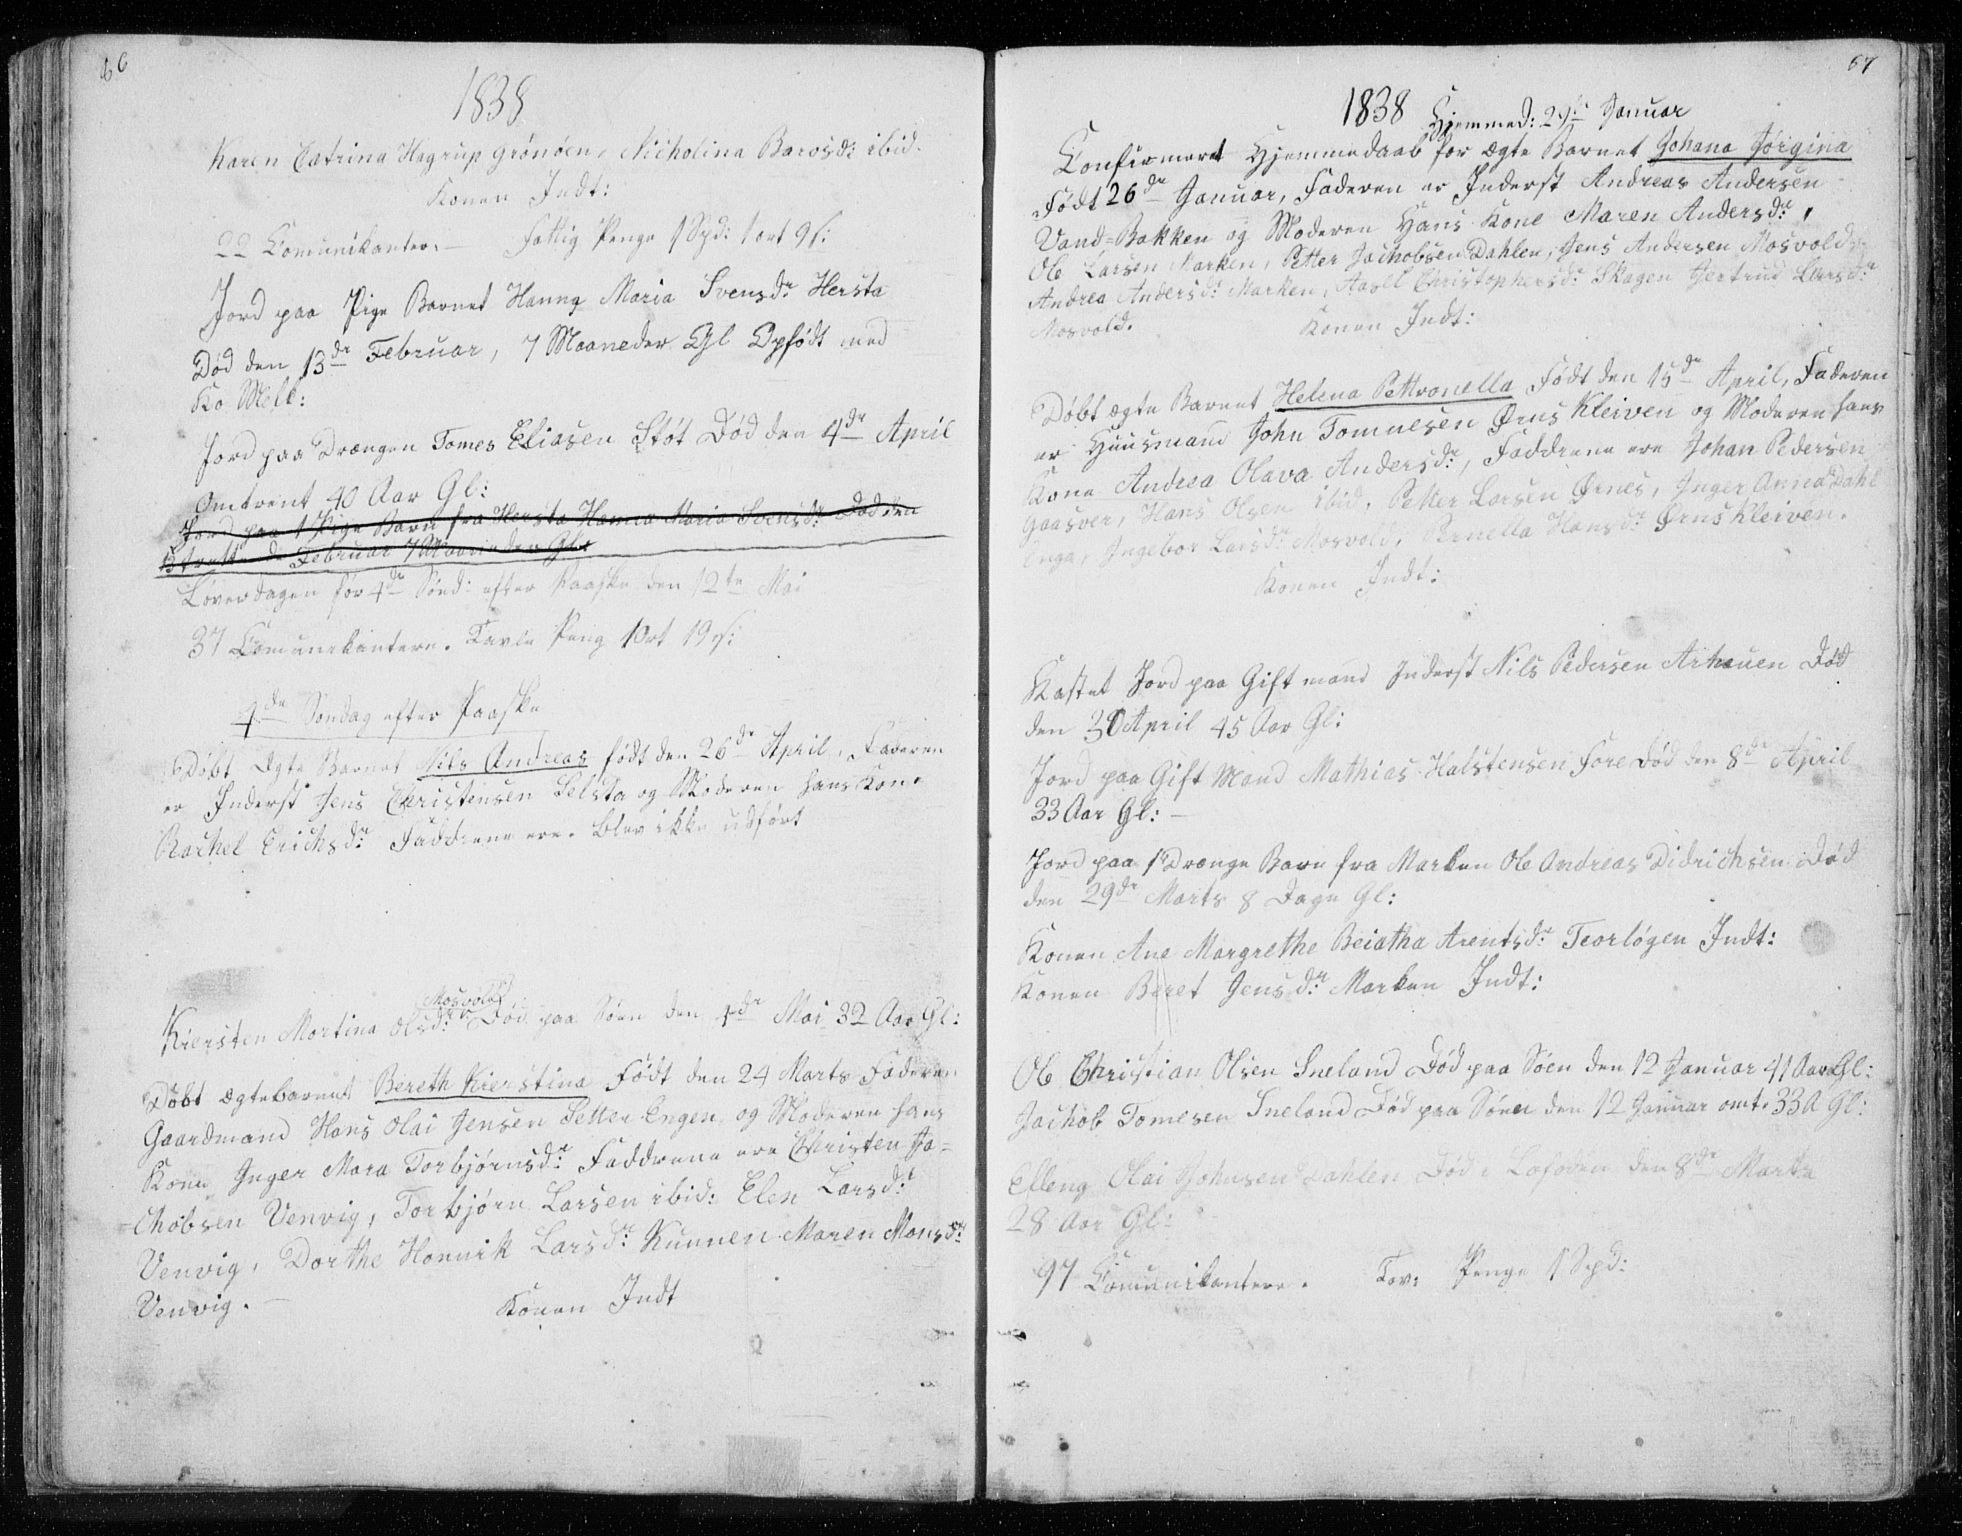 66
1838
Karen Catrina Hagrup Grönöen, Nicholina Barosd: ibid.
Konen Indt:
22 Comunikanter. – Fattig Penge 1 Spd: 1 ort 9 s:
Jord paa Pige Barnet Hanna Maria Svensdr Hersta
Død den 13de Februar, 7 Maaneder Gl Opfødt med
Ko Melk:
Jord paa Drængen Tomes Eliasen Støt Død den 4de April
Omtrent 40 Aar Gl:
Jord paa 1 Pige Barn fra Hersta Hanna Maria Svensdr Død den
Februar 7 Maaneder Gl:
Løverdagen før 4de Sönd: efter Paaske den 12te Mai
37 Comunikantere. Tavle Peng 1 Ort 19 s:
4de Søndag efter Paaske
Døbt Ægte Barnet Nils Andreas født den 26de April, Faderen
er Inderst Jens Christensen Selsta og Moderen hans Kone
Rachel Erichsdr Faddrene ere. blev ikke udført
Mosvold
Kiersten Martina Olsdr Død paa Søen den 1de Mai 32 Aar Gl:
Døbt ægtebarnet Bereth Kierstina Født den 24 Marts Faderen
Gaardmand Hans Olai Jensen Setter Engen og Moderen hans
Kone Inger Mara Torbjørnsdr Faddrene ere Christen Ja=
=chobsen Venvig, Torbjørn Larsen ibid: Elen Larsdr
Venvig, Dorthe Hannik Larsdr Kunnen Maren Monsdr
Venvig. –
Konen Indt
67
1838 Hjemmed: 29de Januar
Confirmeret Hjemmedaab for ægte Barnet Johana Jørgina
Født 26de Januar, Faderen er Inderst Andreas Andersen
Vand=Bakken og Moderen Hans Kone Maren Andersdr,
Ole Larsen Marken, Petter Jachobsen Dahlen, Jens Andersen Mosvold
Andrea Andersdr Marken, Aasel Christophersdr Skagen Jertrud Larsdr
Mosvold. Konen Indt:
Døbt ægte Barnet Helena Pettronella Født den 15de April, Faderen
er Huusmand John Tomnesen Ørns Kleiven og Moderen hans
Kone Andrea Olava Andersdr, Faddrene ere Johan Pedersen
Gaasver, Hans Olsen ibid, Petter Larsen Ørnes, Inger Anna Dahl
Enga, Ingebor Larsdr Mosvold, Pernella Hansdr Ørns Kleiven.
Konen Indt:
Kastet Jord paa Gift mand Inderst Nils Pedersen Arhauen Død
den 30 April 45 Aar Gl:
Jord paa Gift Mand Mathias Halstensen Fore Død den 8de April
33 Aar Gl: –
Jord paa 1 Drænge Barn fra Marken Ole Andreas Didrichsen Død
den 29de Marts 8 Dage Gl:
Konen Ane Margrethe Beiatha Arentsdr Teorløgen Indt:
Konen Beret Jensdr Marken Indt:
Ole Christian Olsen Sneland Død paa Søen den 12 Januar 41 Aar Gl:
Jachob Tomesen Sneland Død paa Søen den 12 Januar omt. 33 A Gl:
Elleng Olai Johnsen Dahlen Død i Lofoden den 8de Marts
28 Aar Gl:
97 Comunikantere. Tav: Penge 1 Spd: